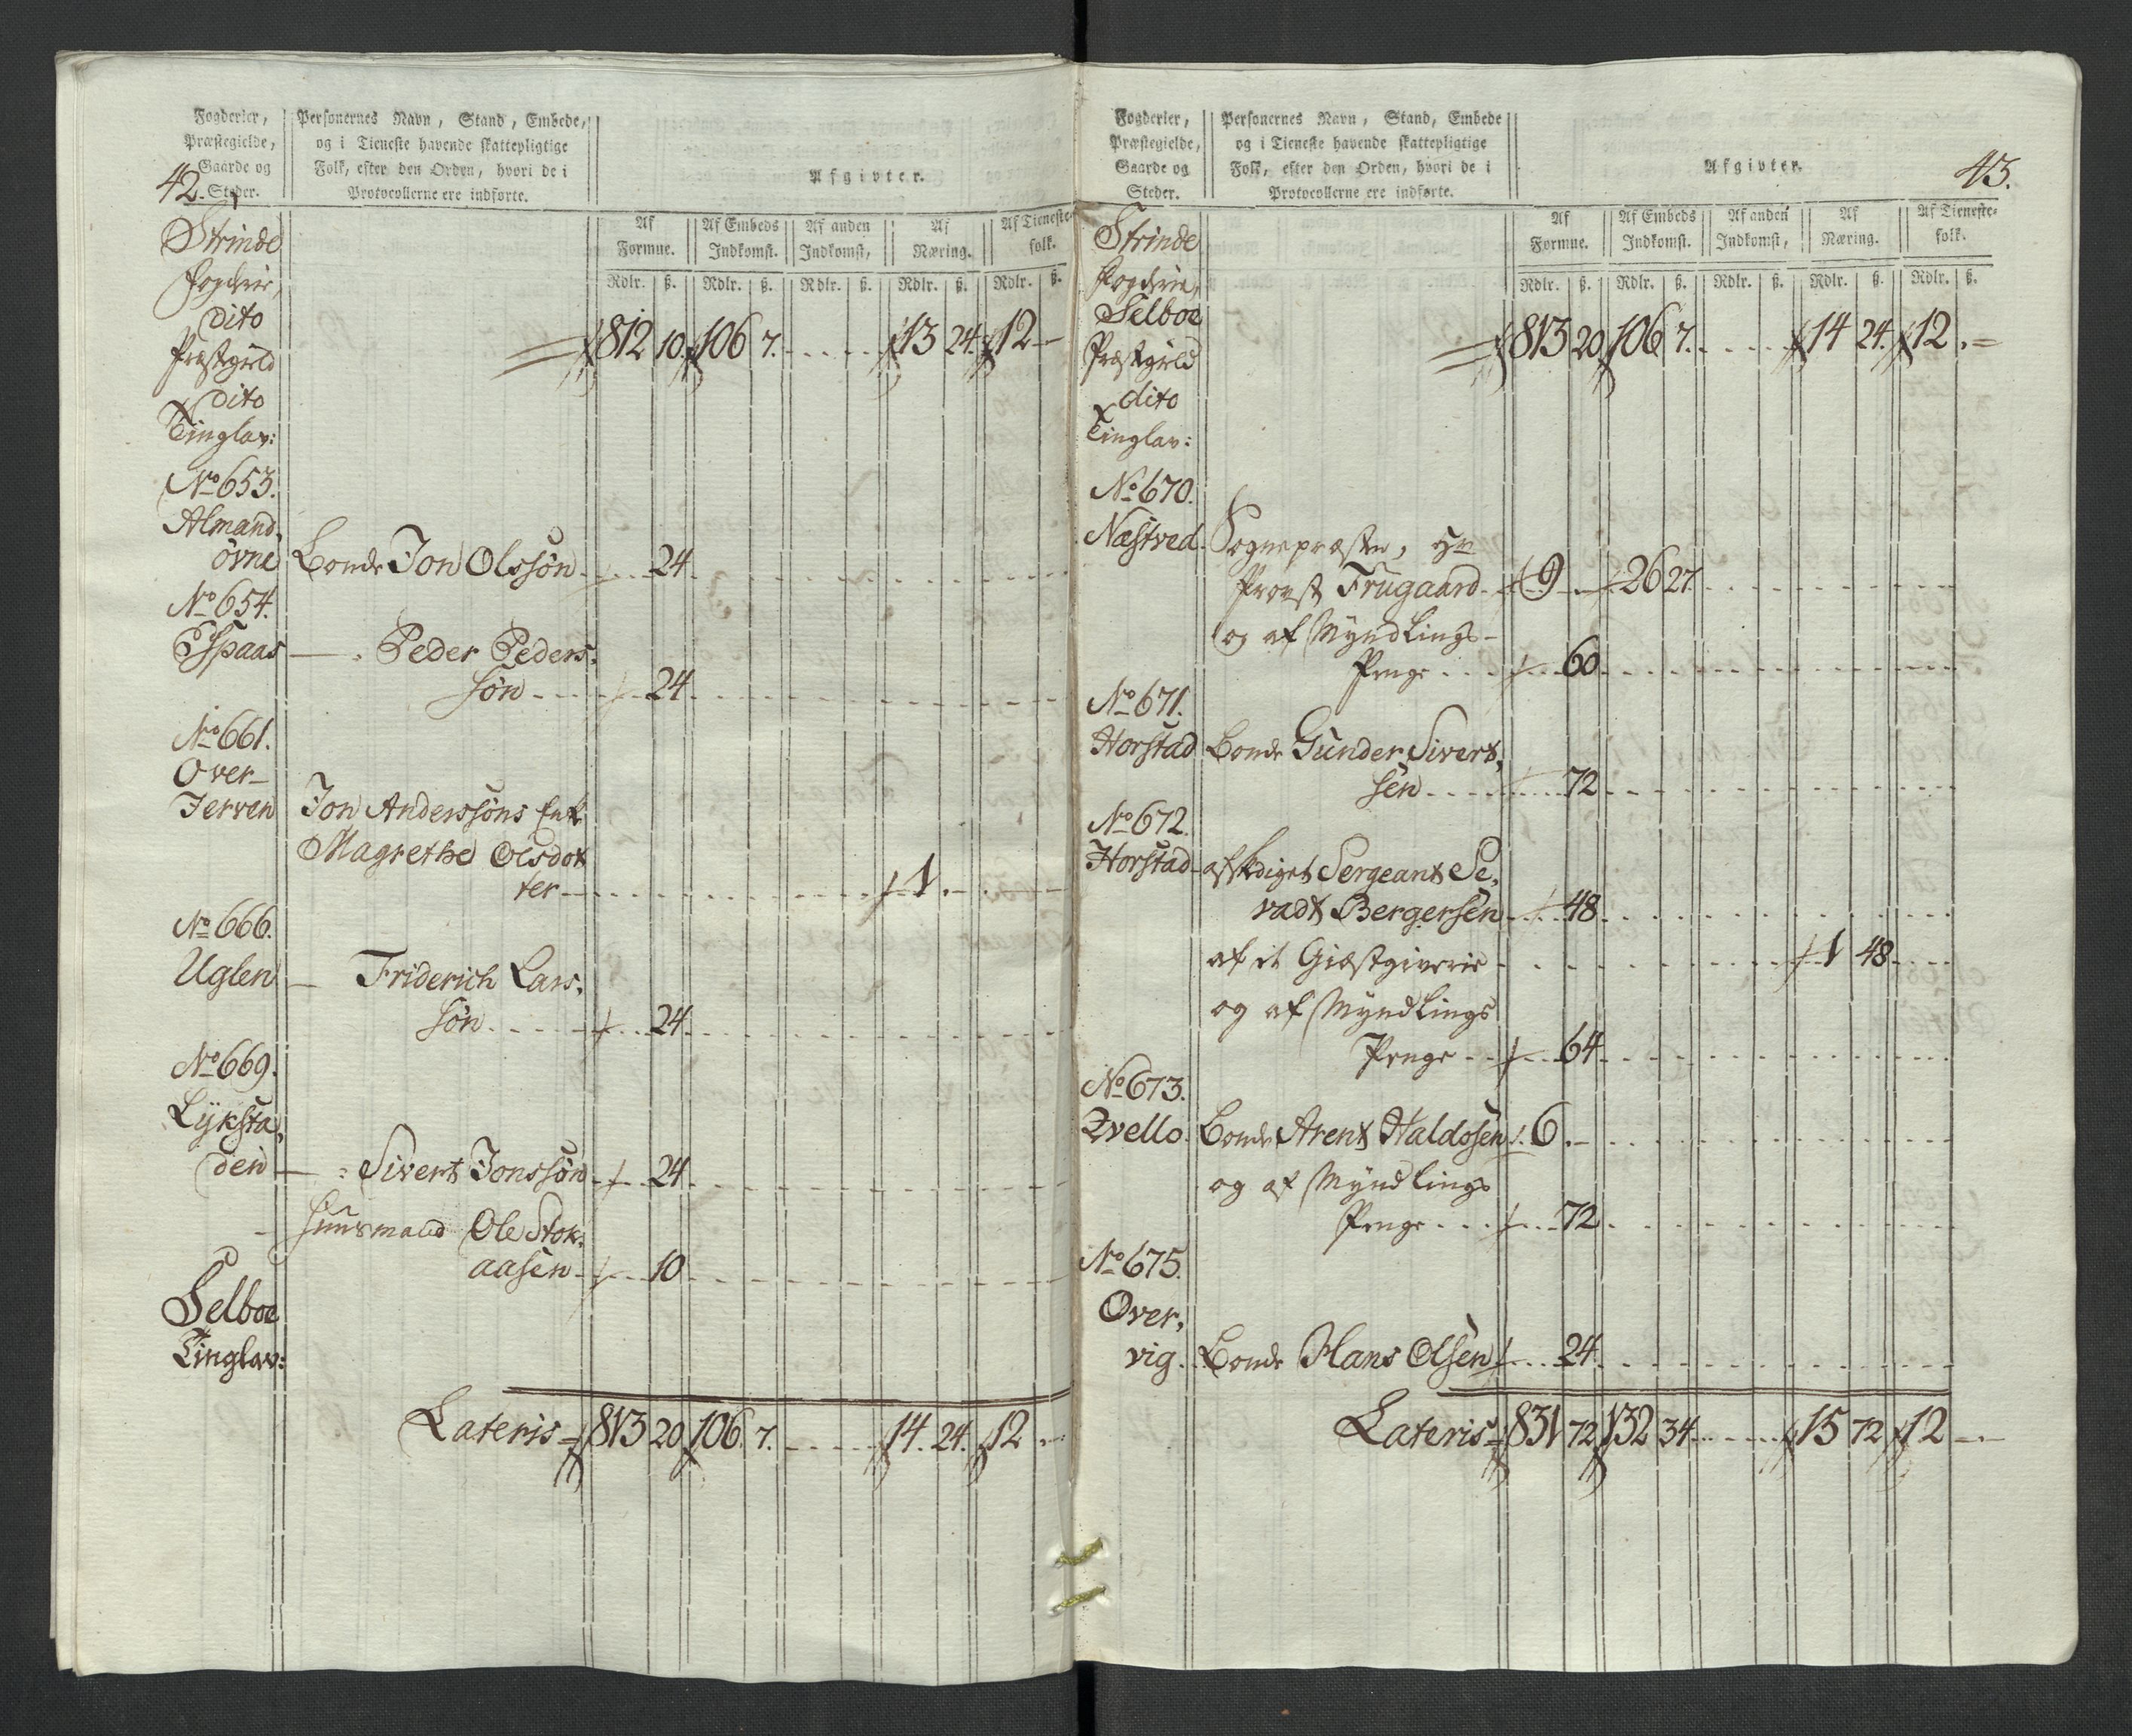 Fogderier, Præstegielde, Gaarde og Steder.
Personernes Navn, Stand, Embede, og i Tieneste havende skattepligtige Folk, efter den Orden, hvori de i Protocollerne ere indførte.
Afgivter.
42.
Af Formue. Af Embeds Indkomst. Af anden Indkomst, Af Næring. Af Tieneste-folk.
Rdlr. ß. Rdlr. ß. Rdlr. ß. Rdlr. ß. Rdlr. ß.
Strinde
Fogderie,
dito
Præstgield 812 10. 106 7. 13 24. 12 —
dito
Tinglav:
No 653.
Almand,
øvne Bonde Jon Olssøn 24.
No 654.
Espaas — Peder Peders,
søn 24.
No 661.
Over-
Jerven Jon Anderssøns Enke
Magrethe Olsdot
ter 1. —
No 666.
Uglen — Friderich Lars,
søn 24.
No 669.
Lyksta,
den — Sivert Jonssøn 24.
Huusmand Ole Stok,
aasen 10
Selboe
Tinglav:
Lateris = 813 20 106. 7. 14. 24. 12 —
Fogderier, Præstegielde, Gaarde og Steder.
Personernes Navn, Stand, Embede og i Tieneste havende skattepligtige Folk, efter den Orden, hvori de i Protocollerne ere indførte.
Afgivter.
43.
Af Formue. Af Embeds Indkomst. Af anden Indkomst, Af Næring. Af Tieneste-folk.
Rdlr. ß. Rdlr. ß. Rdlr. ß. Rdlr. ß. Rdlr. ß.
Strinde
Fogderie,
Selboe
Præstgield 813 20 106 7. 14 24. 12. —
dito
Tinglav:
No 670.
Næstved. Sognepræsten, Hr
Provst Frugaard 9 — 26 27.
og af Myndlings-
Penge 60
No 671.
Horstad Bonde Gunder Sivert,
sen 72
No 672.
Horstad afskediget Sergeant Se,
vadt Bergersen 48
af et Giæstgiverie 1 48
og af Myndlings
Penge 64
No 673.
Qvello. Bonde Arent Haldosen 6. —
og af Myndlings
Penge 72
No 675.
Over,
vig. Bonde Hans Olsen 24.
Lateris = 831 72 132 34. 15 72 12 —